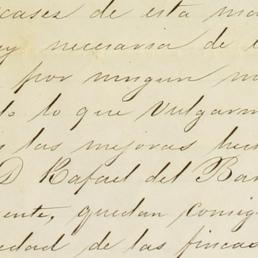 cases de esta ma
y necesaria de l
por ningun m
do lo que vulgarm
s las mejoras hec
D Rafael del Bar
ente, quedan consig
edad de las fincas